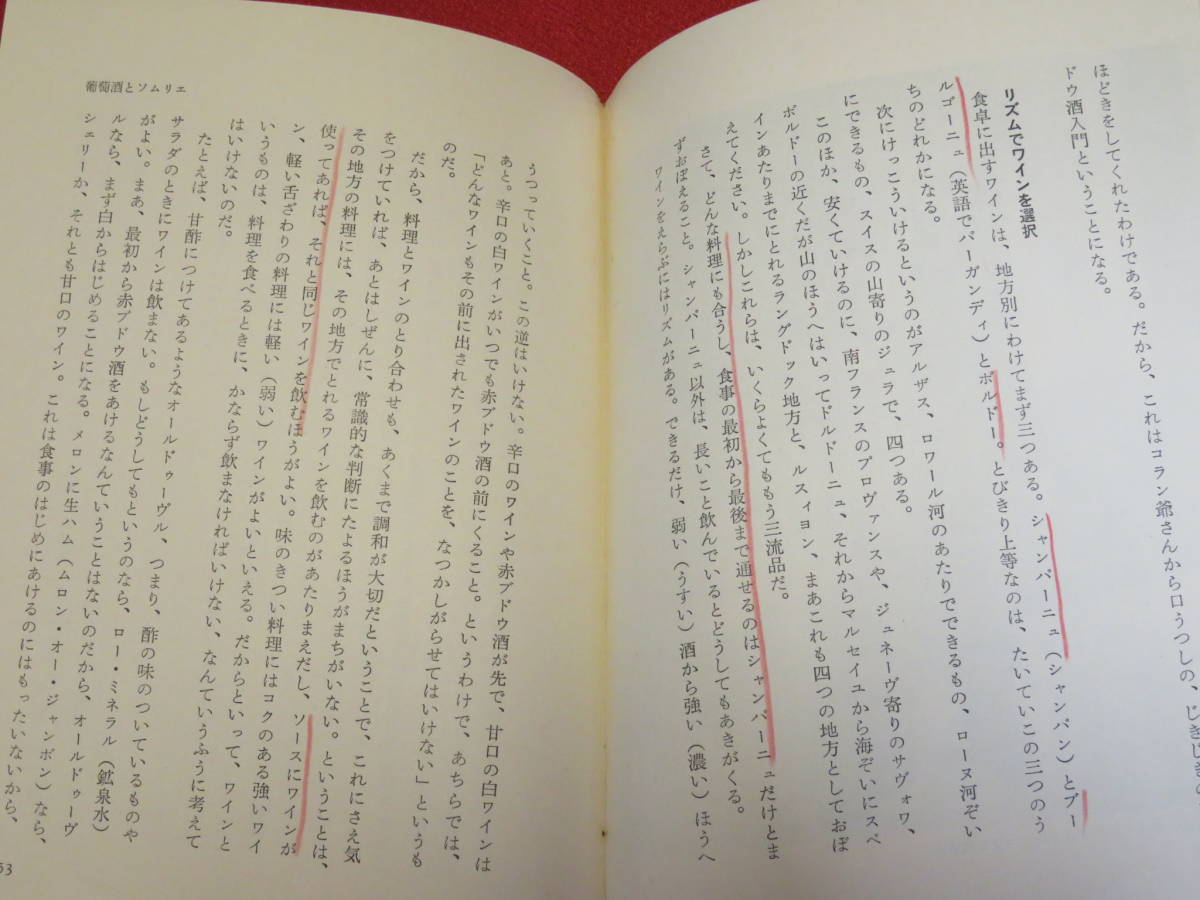 ほどきをしてくれたわけである。だから、これはコラン爺さんから口うつしの、じきじきの
ドウ酒入門ということになる。
リズムでワインを選択
食卓に出すワインは、地方別にわけてまず三つある。シャンパーニュ（シャンパン）とブー
ルゴーニュ（英語でバーガンディ）とボルドー。とびきり上等なのは、たいていこの三つのう
ちのどれかになる。
次にけっこういけるというのがアルザス、ロワール河のあたりでできるもの、ローヌ河ぞい
にできるもの、スイスの山寄りのジュラで、四つある。
このほか、安くていけるのに、南フランスのプロヴァンスや、ジュネーヴ寄りのサヴォワ、
ボルドーの近くだが山のほうへはいってドルドーニュ、それからマルセイユから海ぞいにスペ
インあたりまでにとれるラングドック地方と、ルスィヨン、まあこれも四つの地方としておぼ
えてください。しかしこれらは、いくらよくてももう三流品だ。
さて、どんな料理にも合うし、食事の最初から最後まで通せるのはシャンパーニュだけとま
ずおぼえること。シャンパーニュ以外は、長いこと飲んでいるとどうしてもあきがくる。
ワインをえらぶにはリズムがある。できるだけ、弱い（うすい）酒から強い（濃い）ほうへ
うつっていくこと。この逆はいけない。辛口のワインや赤ブドウ酒が先で、甘口の白ワインは
あと。辛口の白ワインがいつでも赤ブドウ酒の前にくること。というわけで、あちらでは、
「どんなワインもその前に出されたワインのことを、なつかしがらせてはいけない」というも
のだ。
だから、料理とワインのとり合わせも、あくまで調和が大切だということで、これにさえ気
をつけていれば、あとはしぜんに、常識的な判断にたよるほうがまちがいない。ということは、
その地方の料理には、その地方でとれるワインを飲むのがあたりまえだし、ソースにワインが
使ってあれば、それと同じワインを飲むほうがよい。味のきつい料理にはコクのある強いワイ
ン、軽い舌ざわりの料理には軽い（弱い）ワインがよいといえる。だからといって、ワインと
いうものは、料理を食べるときに、かならず飲まなければいけない、なんていうふうに考えて
はいけないのだ。
たとえば、甘酢につけてあるようなオールドゥーヴル、つまり、酢の味のついているものや
サラダのときにワインは飲まない。もしどうしてもというのなら、ロー・ミネラル（鉱泉水）
がよい。まあ、最初から赤ブドウ酒をあけるなんていうことはないのだから、オールドゥーヴ
ルなら、まず白からはじめることになる。メロンに生ハム（ムロン・オー・ジャンボン）なら、
シェリーか、それとも甘口のワイン。これは食事のはじめにあけるのにはもったいないから、
葡萄酒とソムリエ
53